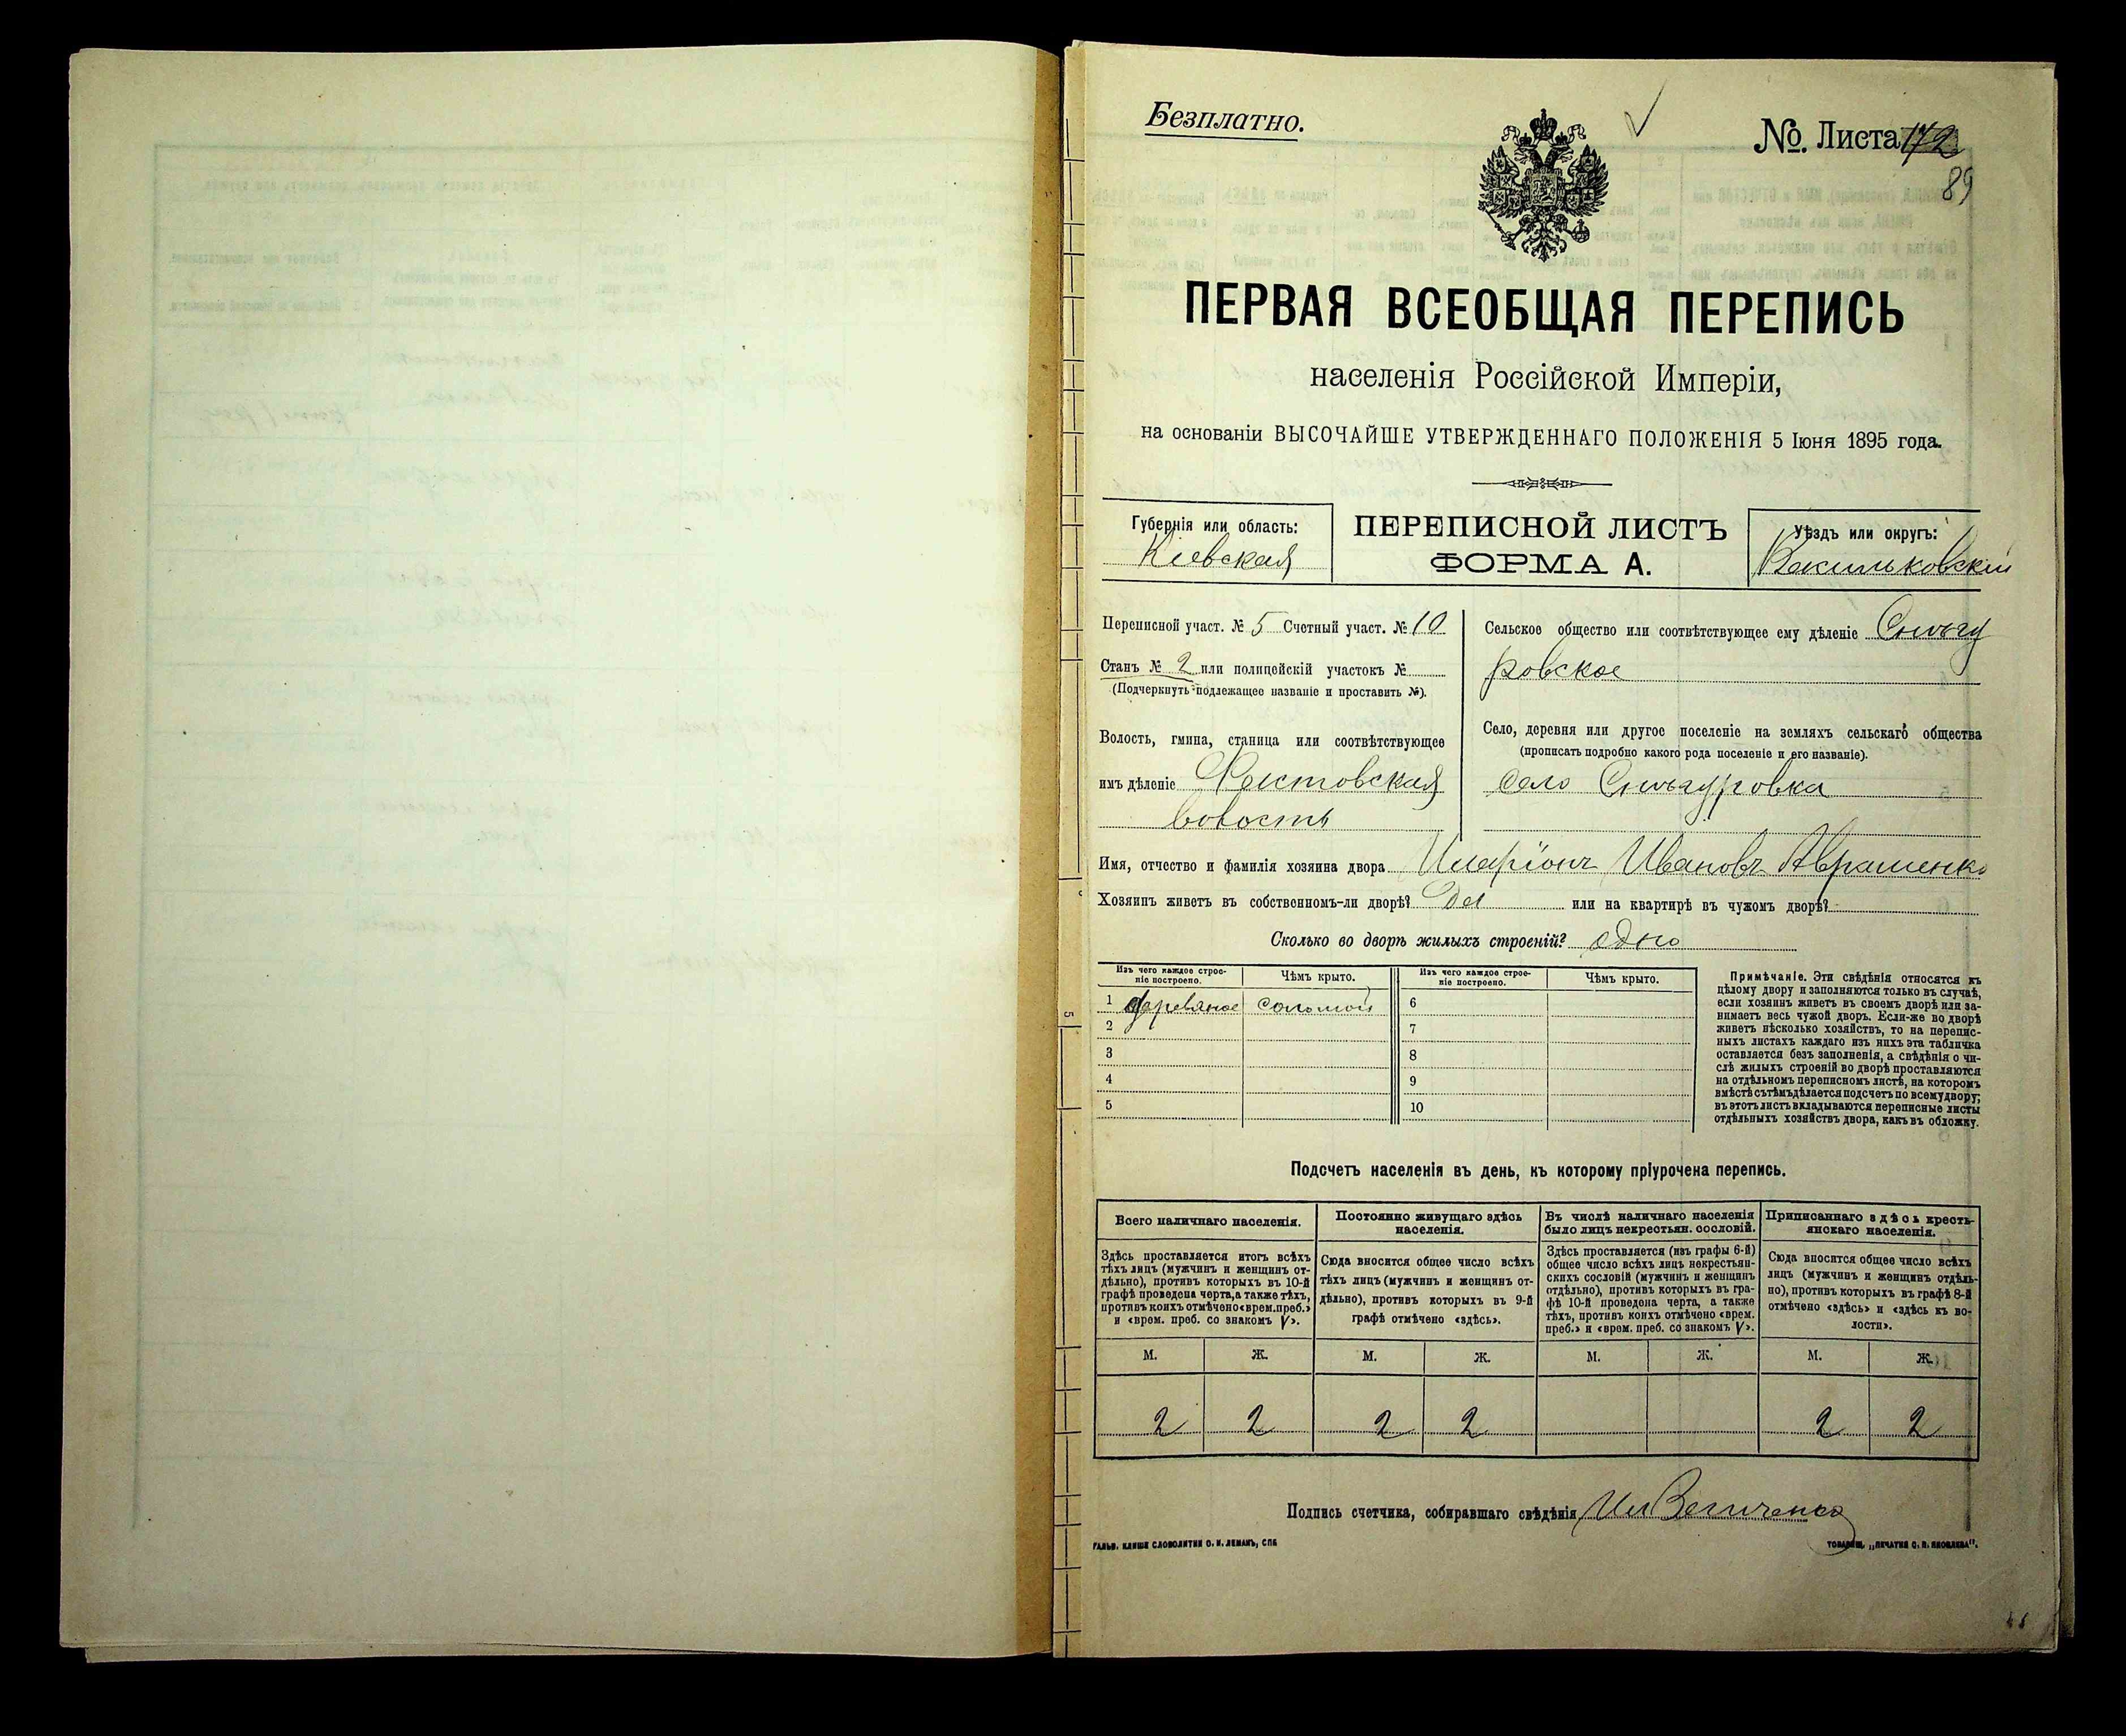 Безплатно.
№. Листа 172
89
ПЕРВАЯ ВСЕОБЩАЯ ПЕРЕПИСЬ
населенія Россійской Имперіи,
на основаніи ВЫСОЧАЙШЕ УТВЕРЖДЕННАГО ПОЛОЖЕНІЯ 5 Іюня 1895 года.
Губернія или область:
Кіевская
ПЕРЕПИСНОЙ ЛИСТЪ
ФОРМА А.
Уѣздъ или округъ:
Васильковскій
Переписной участ. № 5 Счетный участ. № 10
Станъ № 2 или полицейскій участокъ №
(Подчеркнуть подлежащее названіе и проставить №).
Волость, гмина, станица или соотвѣтствующее
имъ дѣленіе Фастовская
волость
Сельское общество или соотвѣтствующее ему дѣленіе Снѣгу
ровское
Село, деревня или другое поселеніе на земляхъ сельскаго общества
(прописать подробно какого рода поселеніе и его названіе).
село Снѣгуровка
Имя, отчество и фамилія хозяина двора Иларіонъ Ивановъ Авраменко
Хозяинъ живетъ въ собственномъ-ли дворѣ? Да или на квартирѣ въ чужомъ дворѣ?
Сколько во дворѣ жилыхъ строеній? одно
Изъ чего каждое строе-
ніе построено.
Чѣмъ крыто.
Изъ чего каждое строе-
ніе построено.
Чѣмъ крыто.
1 деревяное соломой 6
2 7
3 8
4 9
5 10
Примѣчаніе. Эти свѣдѣнія относятся къ
цѣлому двору и заполняются только въ случаѣ,
если хозяинъ живетъ въ своемъ дворѣ или за-
нимаетъ весь чужой дворъ. Если-же во дворѣ
живетъ нѣсколько хозяйствъ, то на перепис-
ныхъ листахъ каждаго изъ нихъ эта табличка
оставляется безъ заполненія, а свѣдѣнія о чи-
слѣ жилыхъ строеній во дворѣ проставляются
на отдѣльномъ переписномъ листѣ, на которомъ
вмѣстѣ съ тѣмъ дѣлается подсчетъ по всему двору;
въ этотъ листъ вкладываются переписные листы
отдѣльныхъ хозяйствъ двора, какъ въ обложку.
Подсчетъ населенія въ день, къ которому пріурочена перепись.
Всего наличнаго населенія.
Здѣсь проставляется итогъ всѣхъ
тѣхъ лицъ (мужчинъ и женщинъ от-
дѣльно), противъ которыхъ въ 10-й
графѣ проведена черта, а также тѣхъ,
противъ коихъ отмѣчено «врем. преб.»
и «врем. преб. со знакомъ V».
Постоянно живущаго здѣсь
населенія.
Сюда вносится общее число всѣхъ
тѣхъ лицъ (мужчинъ и женщинъ от-
дѣльно), противъ которыхъ въ 9-й
графѣ отмѣчено «здѣсь».
Въ числѣ наличнаго населенія
было лицъ некрестьян. сословій.
Здѣсь проставляется (изъ графы 6-й)
общее число всѣхъ лицъ некрестьян-
скихъ сословій (мужчинъ и женщинъ
отдѣльно), противъ которыхъ въ гра-
фѣ 10-й проведена черта, а также
тѣхъ, противъ коихъ отмѣчено «врем.
преб.» и «врем. преб. со знакомъ V».
Приписаннаго здѣсь кресть-
янскаго населенія.
Сюда вносится общее число всѣхъ
лицъ (мужчинъ и женщинъ отдѣль-
но), противъ которыхъ въ графѣ 8-й
отмѣчено «здѣсь» и «здѣсь къ во-
лости».
М. Ж. М. Ж. М. Ж. М. Ж.
2 2 2 2 2 2
Подпись счетчика, собиравшаго свѣдѣнія Ил Величенко
ГАЛЬВ. КЛИШЕ СЛОВОЛИТНИ О. И. ЛЕМАНЪ, СПБ
ТОВАРИЩ. „ПЕЧАТНЯ С. П. ЯКОВЛЕВА".